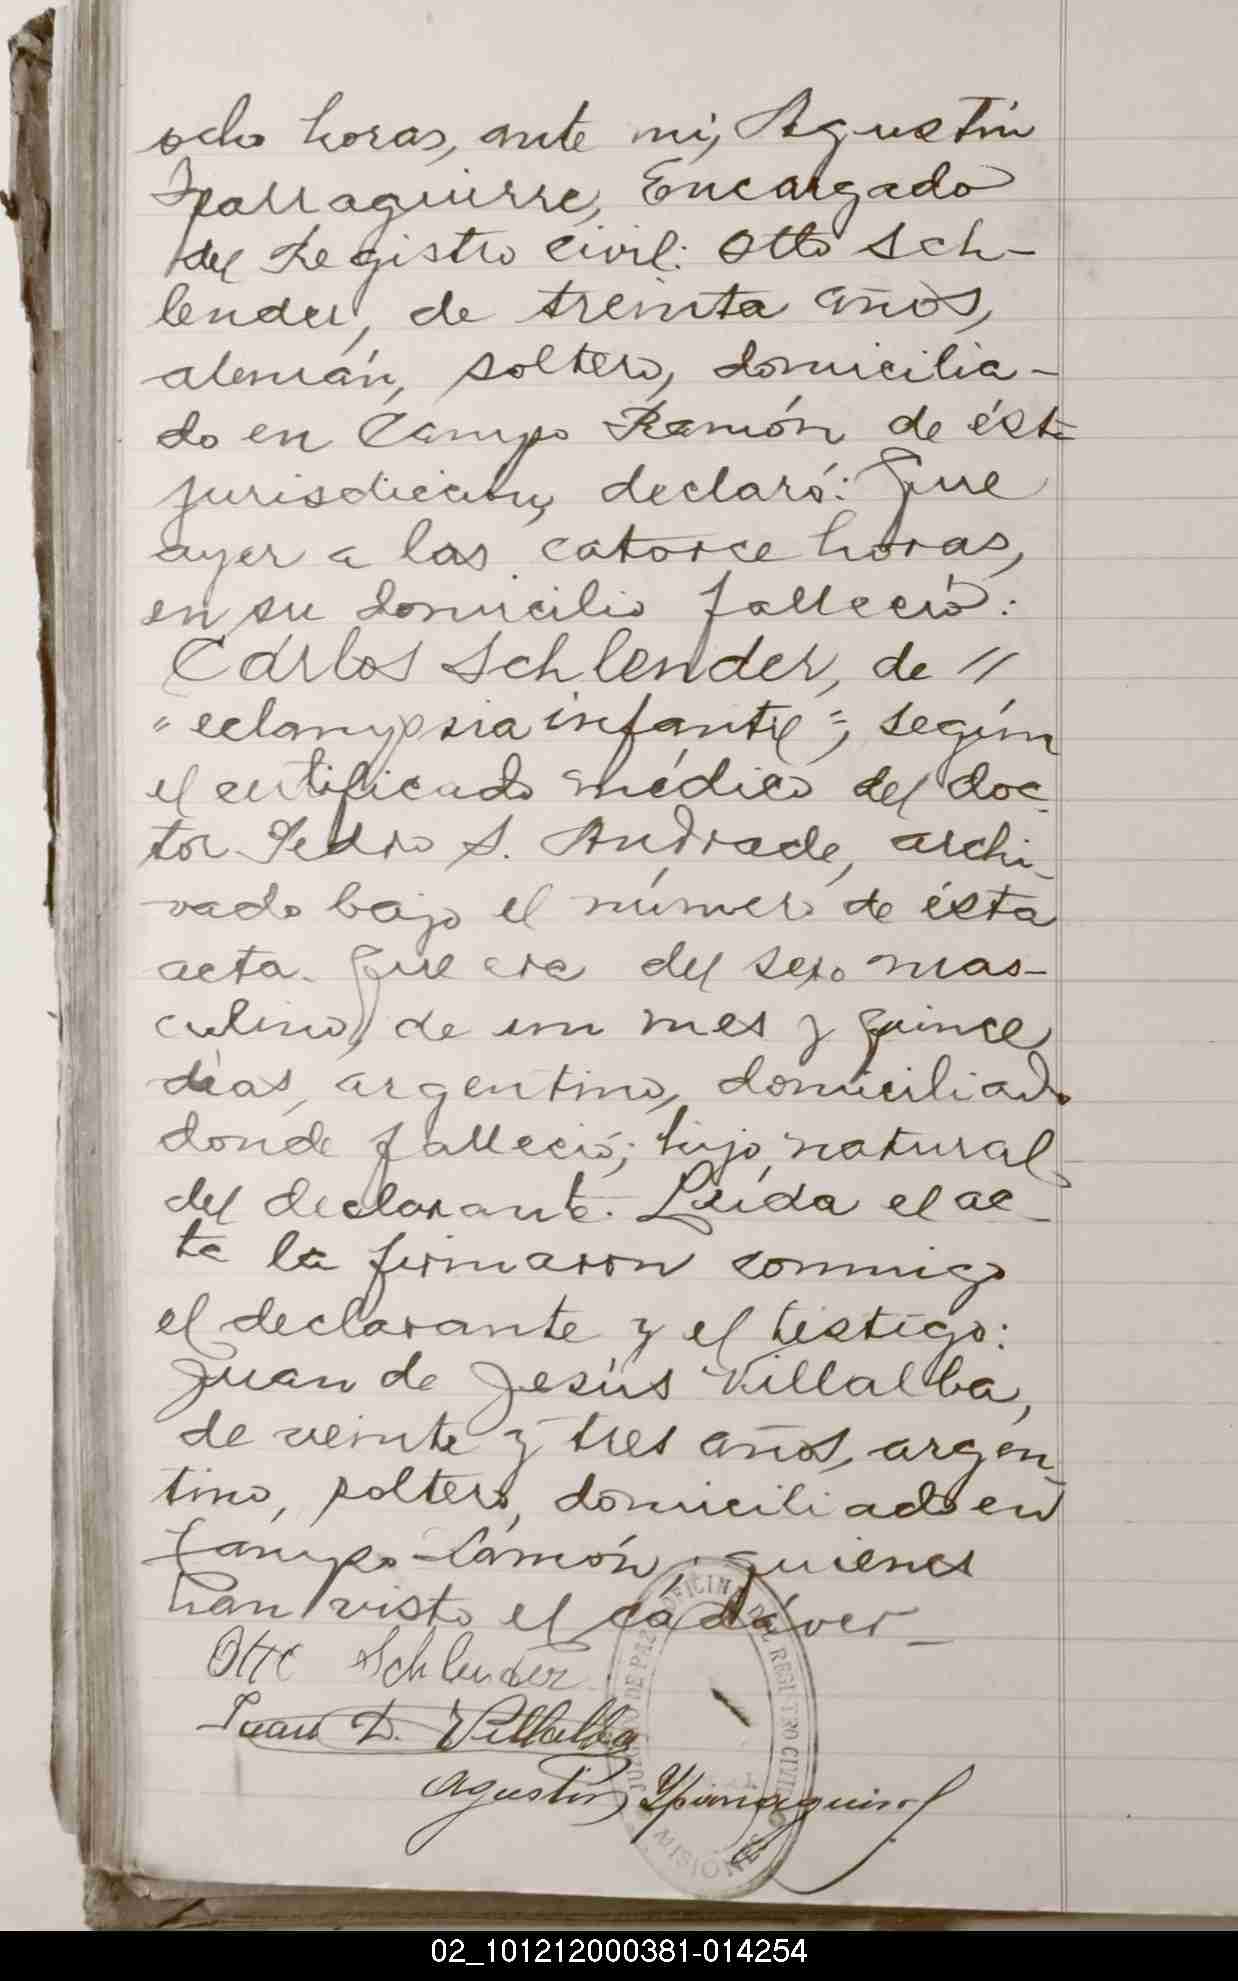 ocho horas, ante mi, Agustín
Iparraguirre, Encargado
del Registro Civil: Otto Sch-
lender, de treinta años,
alemán, soltero, domicilia-
do en Campo Ramón de ésta
jurisdicción, declaró: Que
ayer a las catorce horas,
en su domicilio falleció:
Carlos Schlender, de "
"eclampsia infantil", según
el certificado médico del doc-
tor Pedro S. Andrade, archi-
vado bajo el número de ésta
acta. Que era del sexo mas-
culino, de un mes y quince
días, argentino, domiciliado
donde falleció; hijo natural
del declarante. Leída el ac-
ta la firmaron conmigo
el declarante y el testigo:
Juan de Jesús Villalba,
de veinte y tres años, argen-
tino, soltero, domiciliado en
Campo Ramón, quienes
han visto el cadáver_
Otto Schlender
Juan D. Villalba
Agustín Yparraguirre
JUZGADO DE PAZ OFICINA DEL REGISTRO CIVIL
MISIONES
02_101212000381-014254